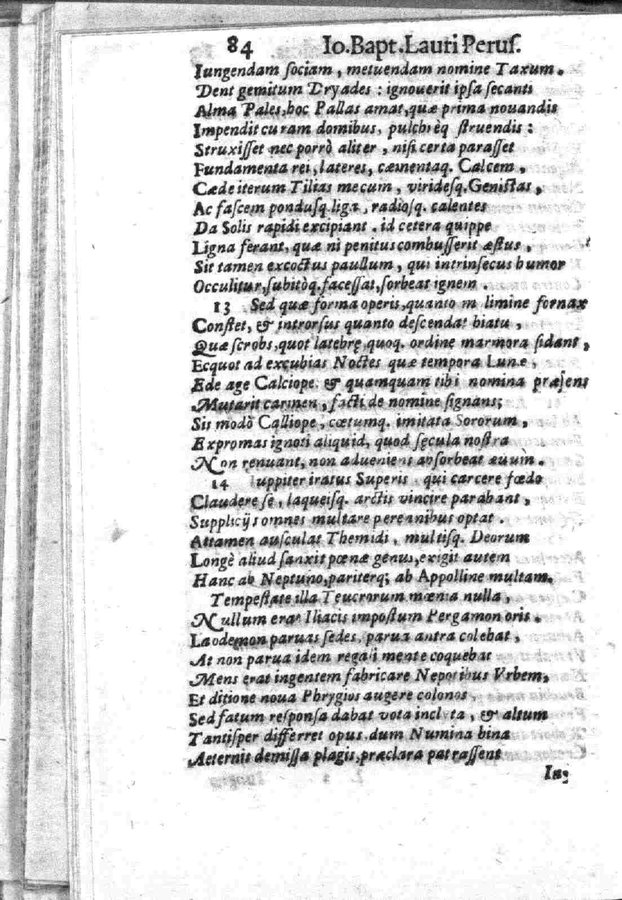 84 Io. Bapt. Lauri Perus.
Iungendam sociam, metuendam nomine Taxum.
Dent gemitum Dryades: ignouerit ipsa secanti
Alma Pales, hoc Pallas amat, quæ prima nouandis
Impendit curam domibus, pulchrèq struendis:
Struxisset nec porrò aliter, nisi certa parasset
Fundamenta rei, lateres, cæmentaq. Calcem,
Cæde iterum Tilias mecum, viridesq. Genistas,
Ac fascem pondusq. liga, radiosq. calentes
Da Solis rapidi excipiant. id cetera quippe
Ligna ferant, quæ ni penitus combusserit æstus,
Sit tamen excoctus paullum, qui intrinsecus humor
Occulitur, subitòq. facessat, sorbeat ignem.
13 Sed quæ forma operis, quanto in limine fornax
Constet, & introrsus quanto descendat hiatu,
Quæ scrobs, quot latebrę, quoq. ordine marmora sidant,
Ecquot ad excubias Noctes quæ tempora Lunæ,
Ede age Calciope. & quamquam tibi nomina præsens
Mutarit carmen, facti de nomine signans;
Sis modò Calliope, cœtumq. imitata Sororum,
Expromas ignoti aliquid, quod sęcula nostra
Non renuant, non adueniens absorbeat æuum.
14 Iuppiter iratus Superis qui carcere fœdo
Claudere se, laqueisq. arctis vincire parabant,
Supplicijs omnes multare perennibus optat.
Attamen ausculat Themidi, multisq. Deorum
Longè aliud sanxit pœnæ genus, exigit autem
Hanc ab Neptuno, pariterq; ab Appolline multam.
Tempestate illa Teucrorum mænia nulla,
Nullum erat Iliacis impostum Pergamon oris.
Laodemon paruas sedes, parua antra colebat,
At non parua idem regali mente coquebat
Mens erat ingentem fabricare Nepotibus Vrbem,
Et ditione noua Phrygios augere colonos
Sed fatum responsa dabat vota inclyta, & altum
Tantisper differret opus. dum Numina bina
Aeternit demissa plagis, præclara patrassent
In-